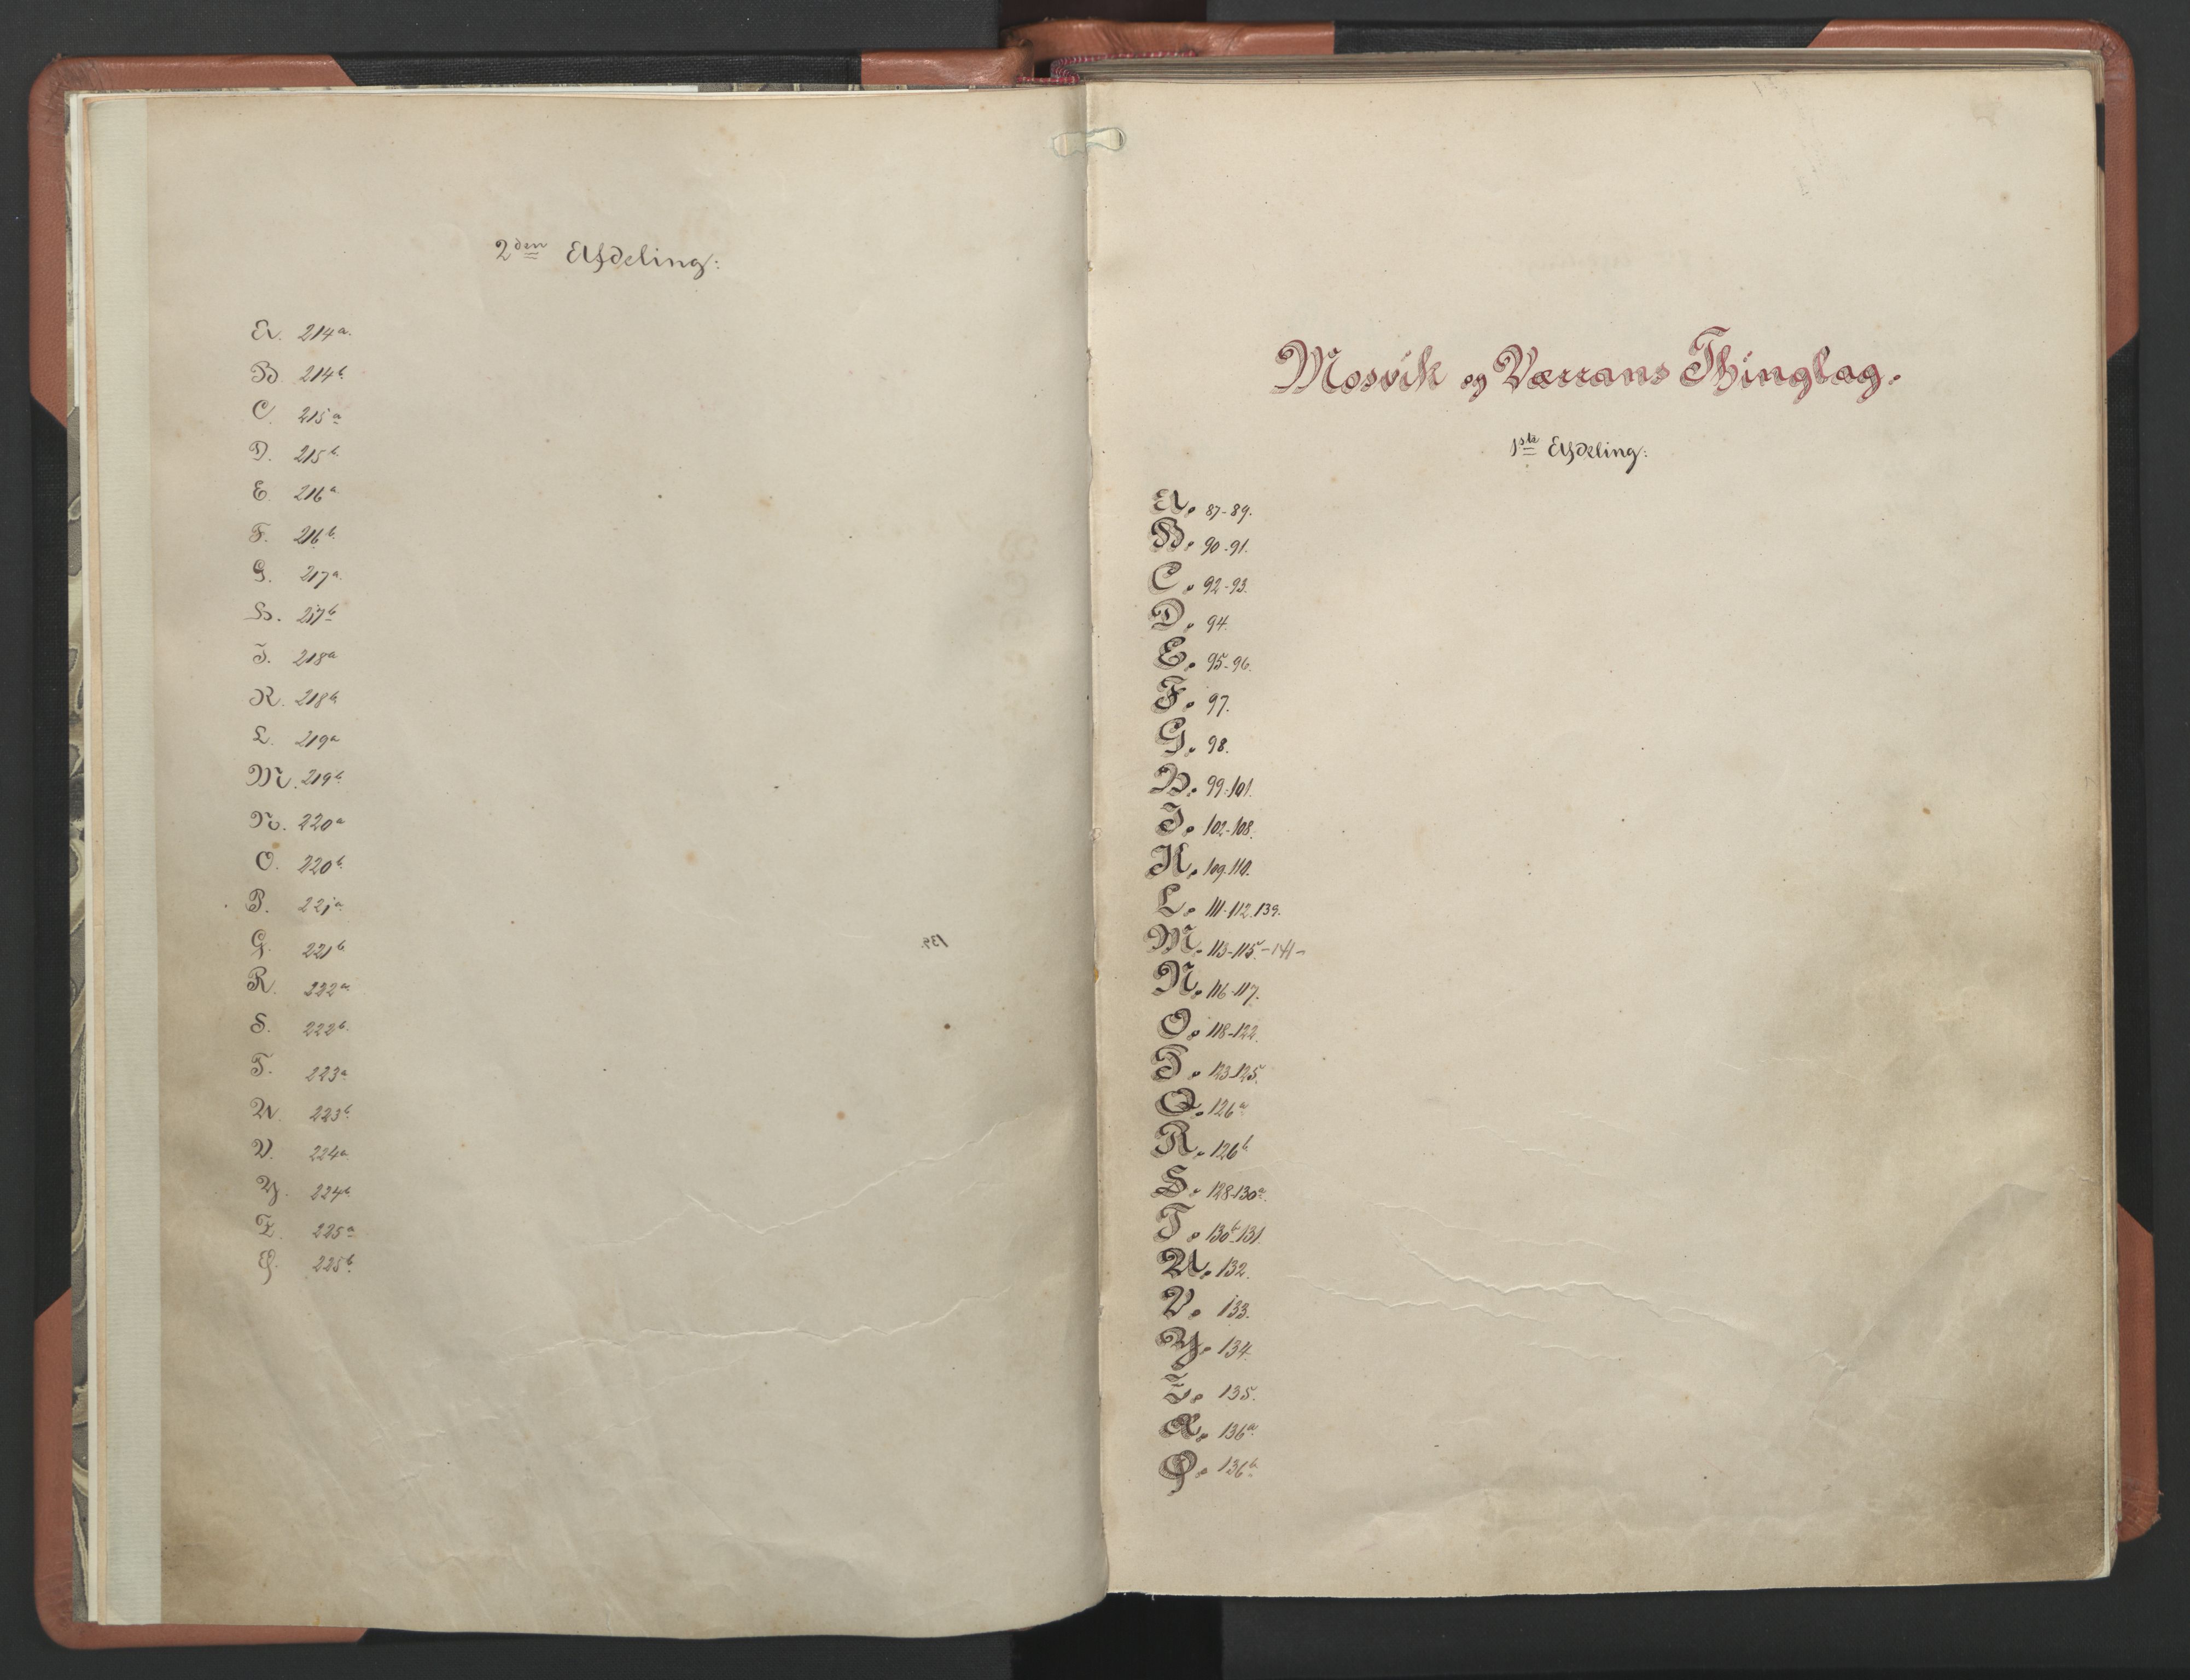 2den Afdeling:
A. 214a.
B. 214b.
C. 215a
D. 215b.
E. 216a
F. 216b.
G. 217a.
H. 217b
I. 218a
K. 218b
L. 219a
M. 219b.
N. 220a
O. 220b.
P. 221a.
Q. 221b
R. 222a
S. 222b.
T. 223a
U. 223b.
V. 224a
Y. 224b
Z. 225a
Ø. 225b.
Mosvik og Værrans Thinglag.
1ste Afdeling:
A. 87-89.
B. 90-91.
C. 92-93.
D. 94.
E. 95-96.
F. 97.
G. 98.
H. 99-101.
I. 102-108.
K. 109-110.
L. 111-112.139.
M. 113-115-141-
N. 116-117.
O. 118-122.
P. 123-125.
Q. 126a
R. 126b
S. 128-130a.
T. 130b-131.
U. 132.
V. 133.
Y. 134.
Z. 135.
Æ. 136a.
Ø. 136b.